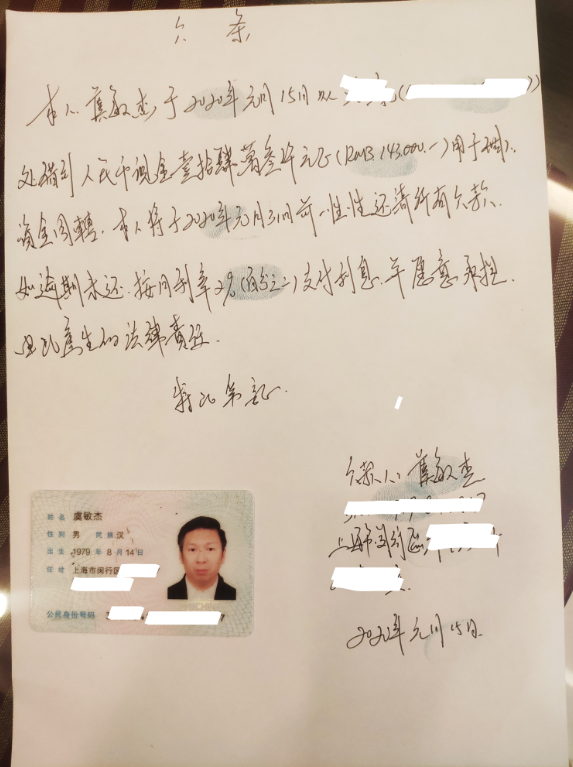 欠 条
本人虞敏杰于2022年元月15日从 ( )
处借到人民币现金壹拾肆萬叁仟元正(RMB.143,000.-)用于
资金周轉.本人将于2022年元月31日前一次性还清所有欠款.
如逾期未还.按月利率2%(百分之二)支付利息.并愿意承担
由此产生的法律责任.
特此条证.
欠款人:虞敏杰
上海市闵行区
2022年元月15日.
姓名 虞敏杰
性别 男 民族 汉
出生 1979 年 8 月 14 日
住址 上海市闵行区
公民身份号码